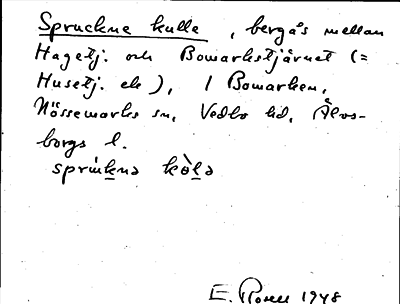 Spruckne kulle, bergås mellan
Hagetj. och Bowarkstjärnet (=
Husetj. ek), I Bowarken,
Nössemarks sn, Vedbo hd, Älvs-
borgs l.
sprúknə kòlə
E. Rosell 1948